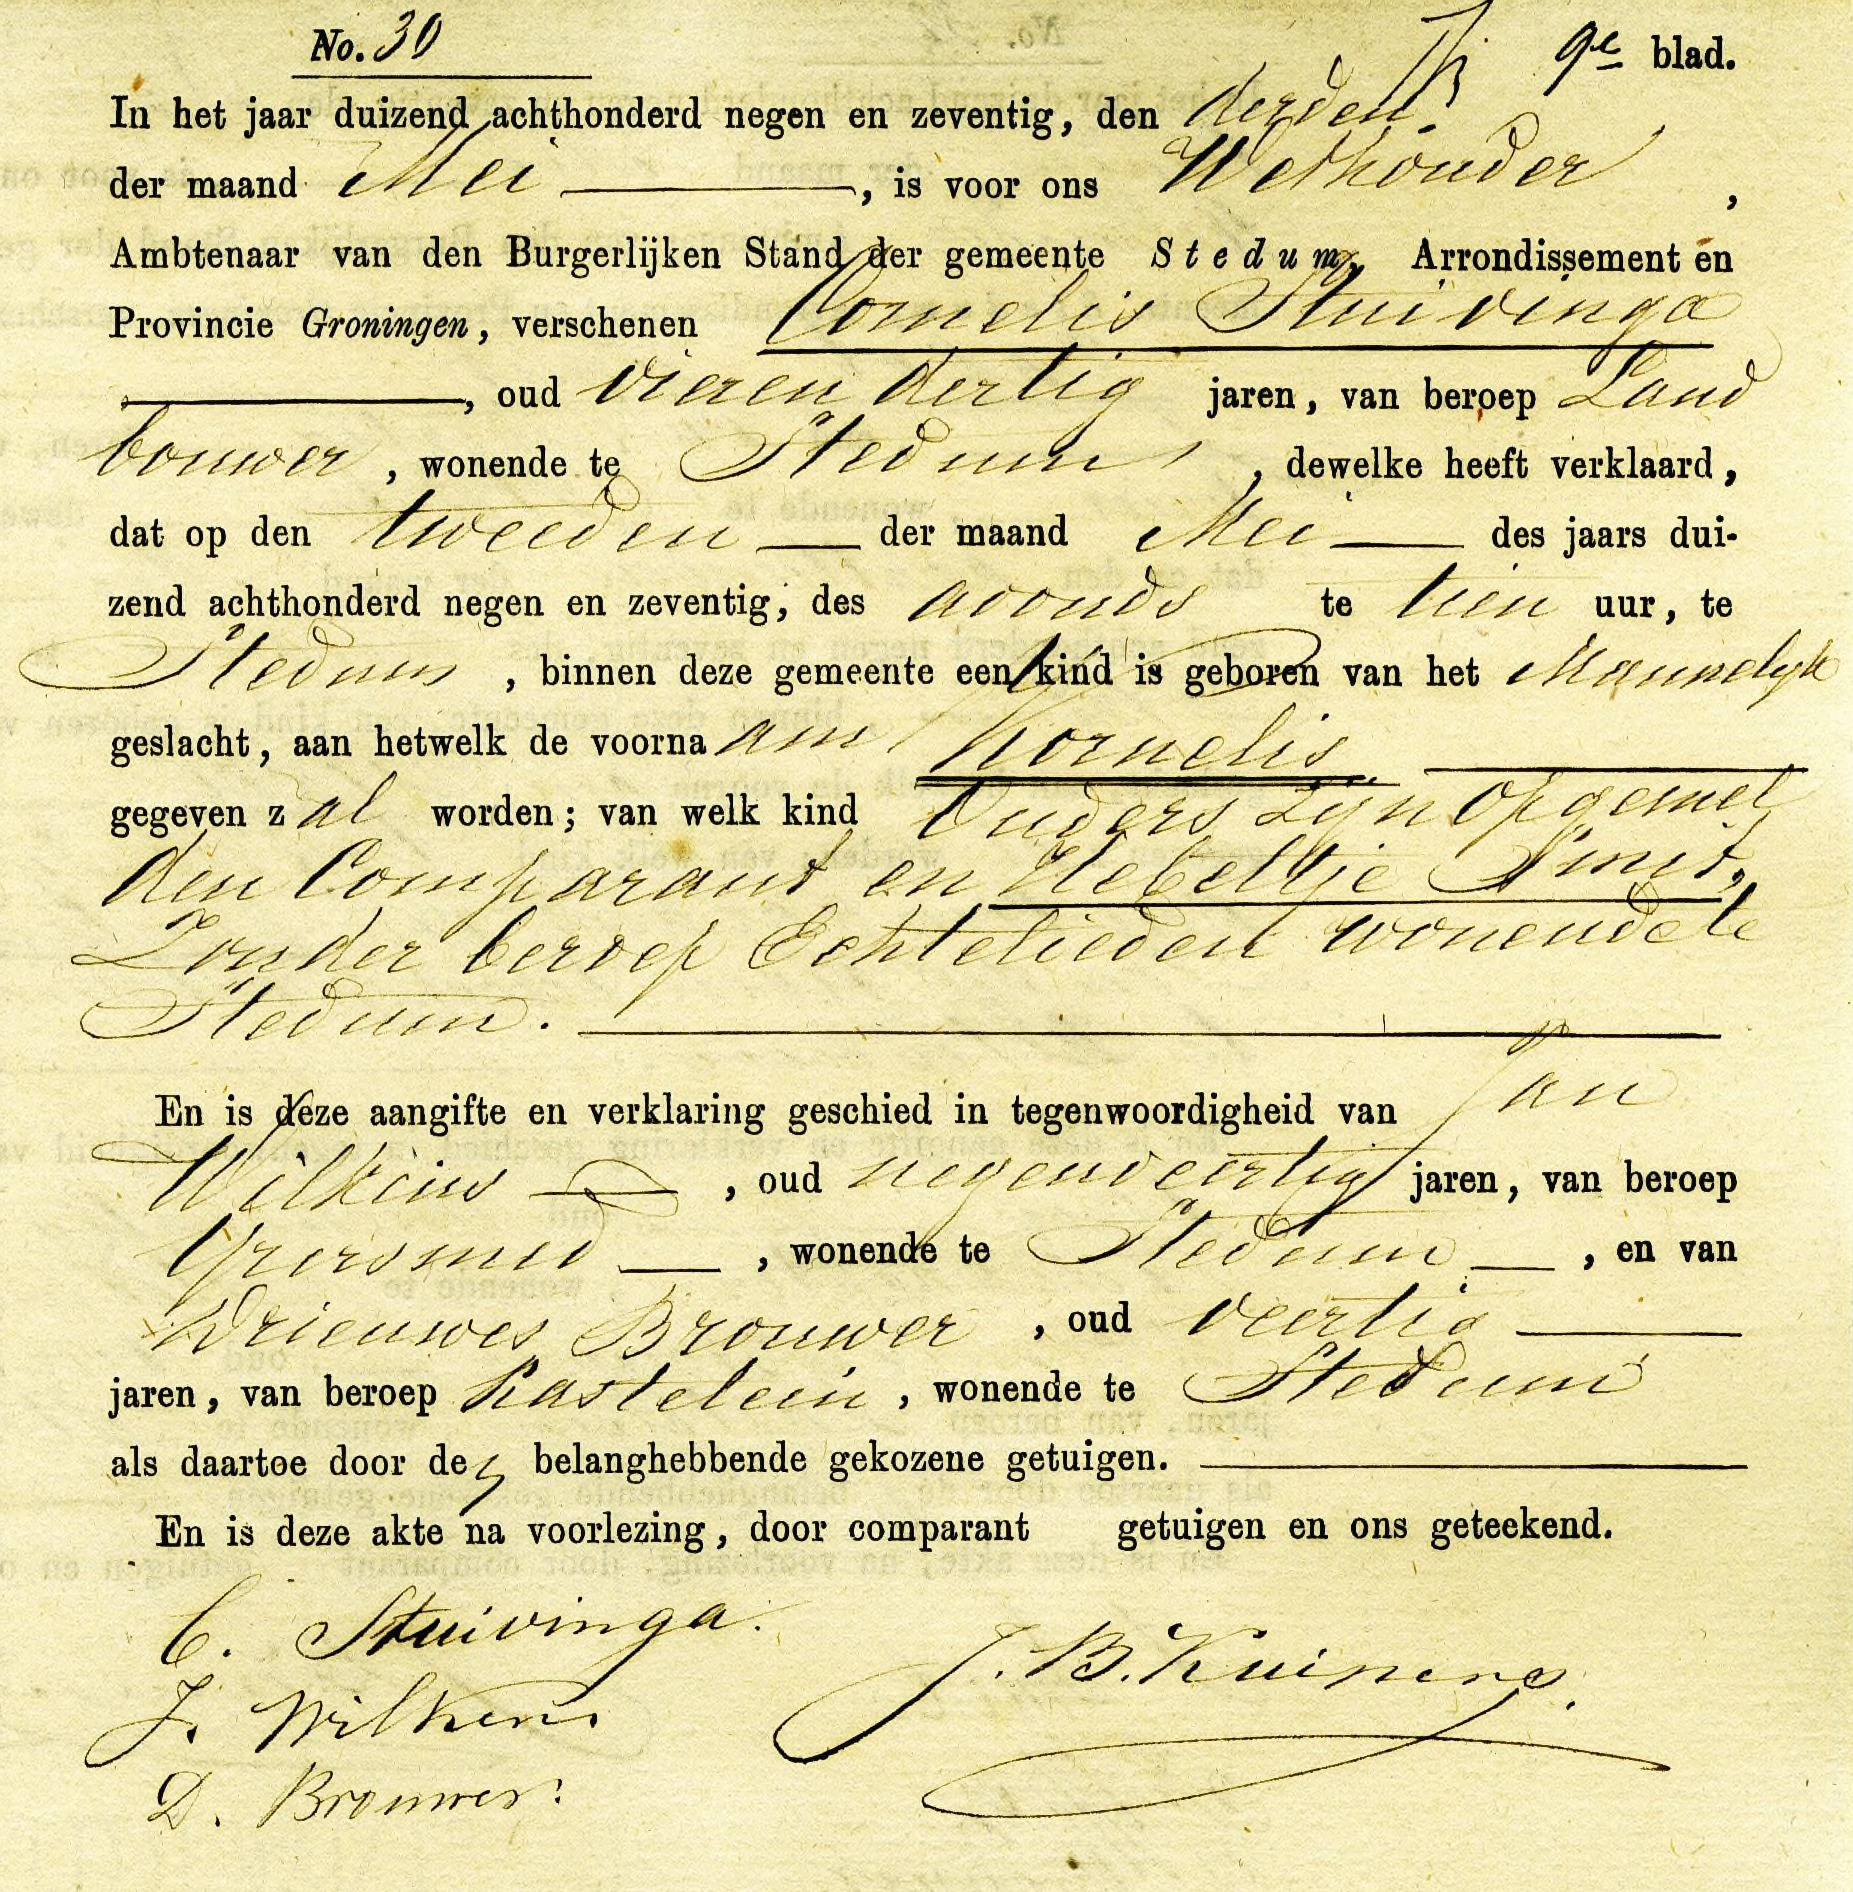 No. 30 9e blad.
In het jaar duizend achthonderd negen en zeventig, den derden
der maand Mei, is voor ons Wethouder,
Ambtenaar van den Burgerlijken Stand der gemeente Stedum, Arrondissement en
Provincie Groningen, verschenen Cornelis Stuivinga
, oud vieren dertig jaren, van beroep Land
bouwer, wonende te Stedum, dewelke heeft verklaard,
dat op den tweeden der maand Mei des jaars dui-
zend achthonderd negen en zeventig, des avonds te tien uur, te
Stedum, binnen deze gemeente een kind is geboren van het Mannelijk
geslacht, aan hetwelk de voornaam Kornelis
gegeven zal worden; van welk kind Ouders zijn opgemel
den Comparant en Hebeltje Smit,
Zonder beroep Echtelieden wonende te
Stedum.
En is deze aangifte en verklaring geschied in tegenwoordigheid van Jan
Wilkens, oud negenveertig jaren, van beroep
IJzersmid, wonende te Stedum, en van
Drieuwes Brouwer, oud veertig
jaren, van beroep Kastelein, wonende te Stedum
als daartoe door de belanghebbende gekozene getuigen.
En is deze akte na voorlezing, door comparant getuigen en ons geteekend.
C. Stuivinga.
J. B. Kuipers.
J. Wilkens
D. Brouwer.